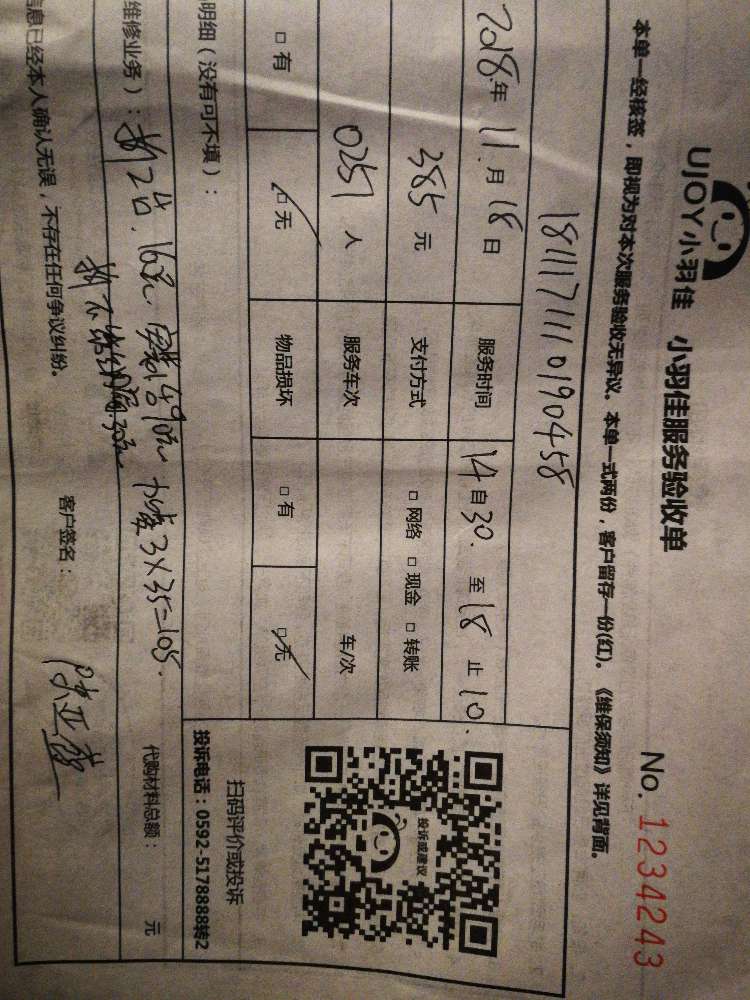 UJOY小羽佳 小羽佳服务验收单
No. 1234243
本单一经核签，即视为对本次服务验收无异议。本单一式两份，客户留存一份(红)。《维保须知》详见背面。
1811171110190458
2018.年 11.月 18日 服务时间 14自30. 至 18 止 10.
385 元 支付方式 □ 网络 □ 现金 □ 转账
0251 人 服务车次 车/次
□ 有 □ 无 物品损坏 □ 有 □ 无
明细（没有可不填）：
投诉或建议
扫码评价或投诉
投诉电话：0592-5178888转2
维修业务）：拆2台. 160元 安装 3×35=105.
30元
代购材料总额： 元
信息已经本人确认无误，不存在任何争议纠纷。
客户签名：